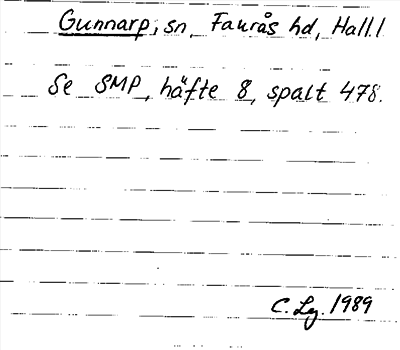 Gunnarp, sn, Faurås hd, Hall.
Se SMP, häfte 8, spalt 478.
C. Lg. 1989